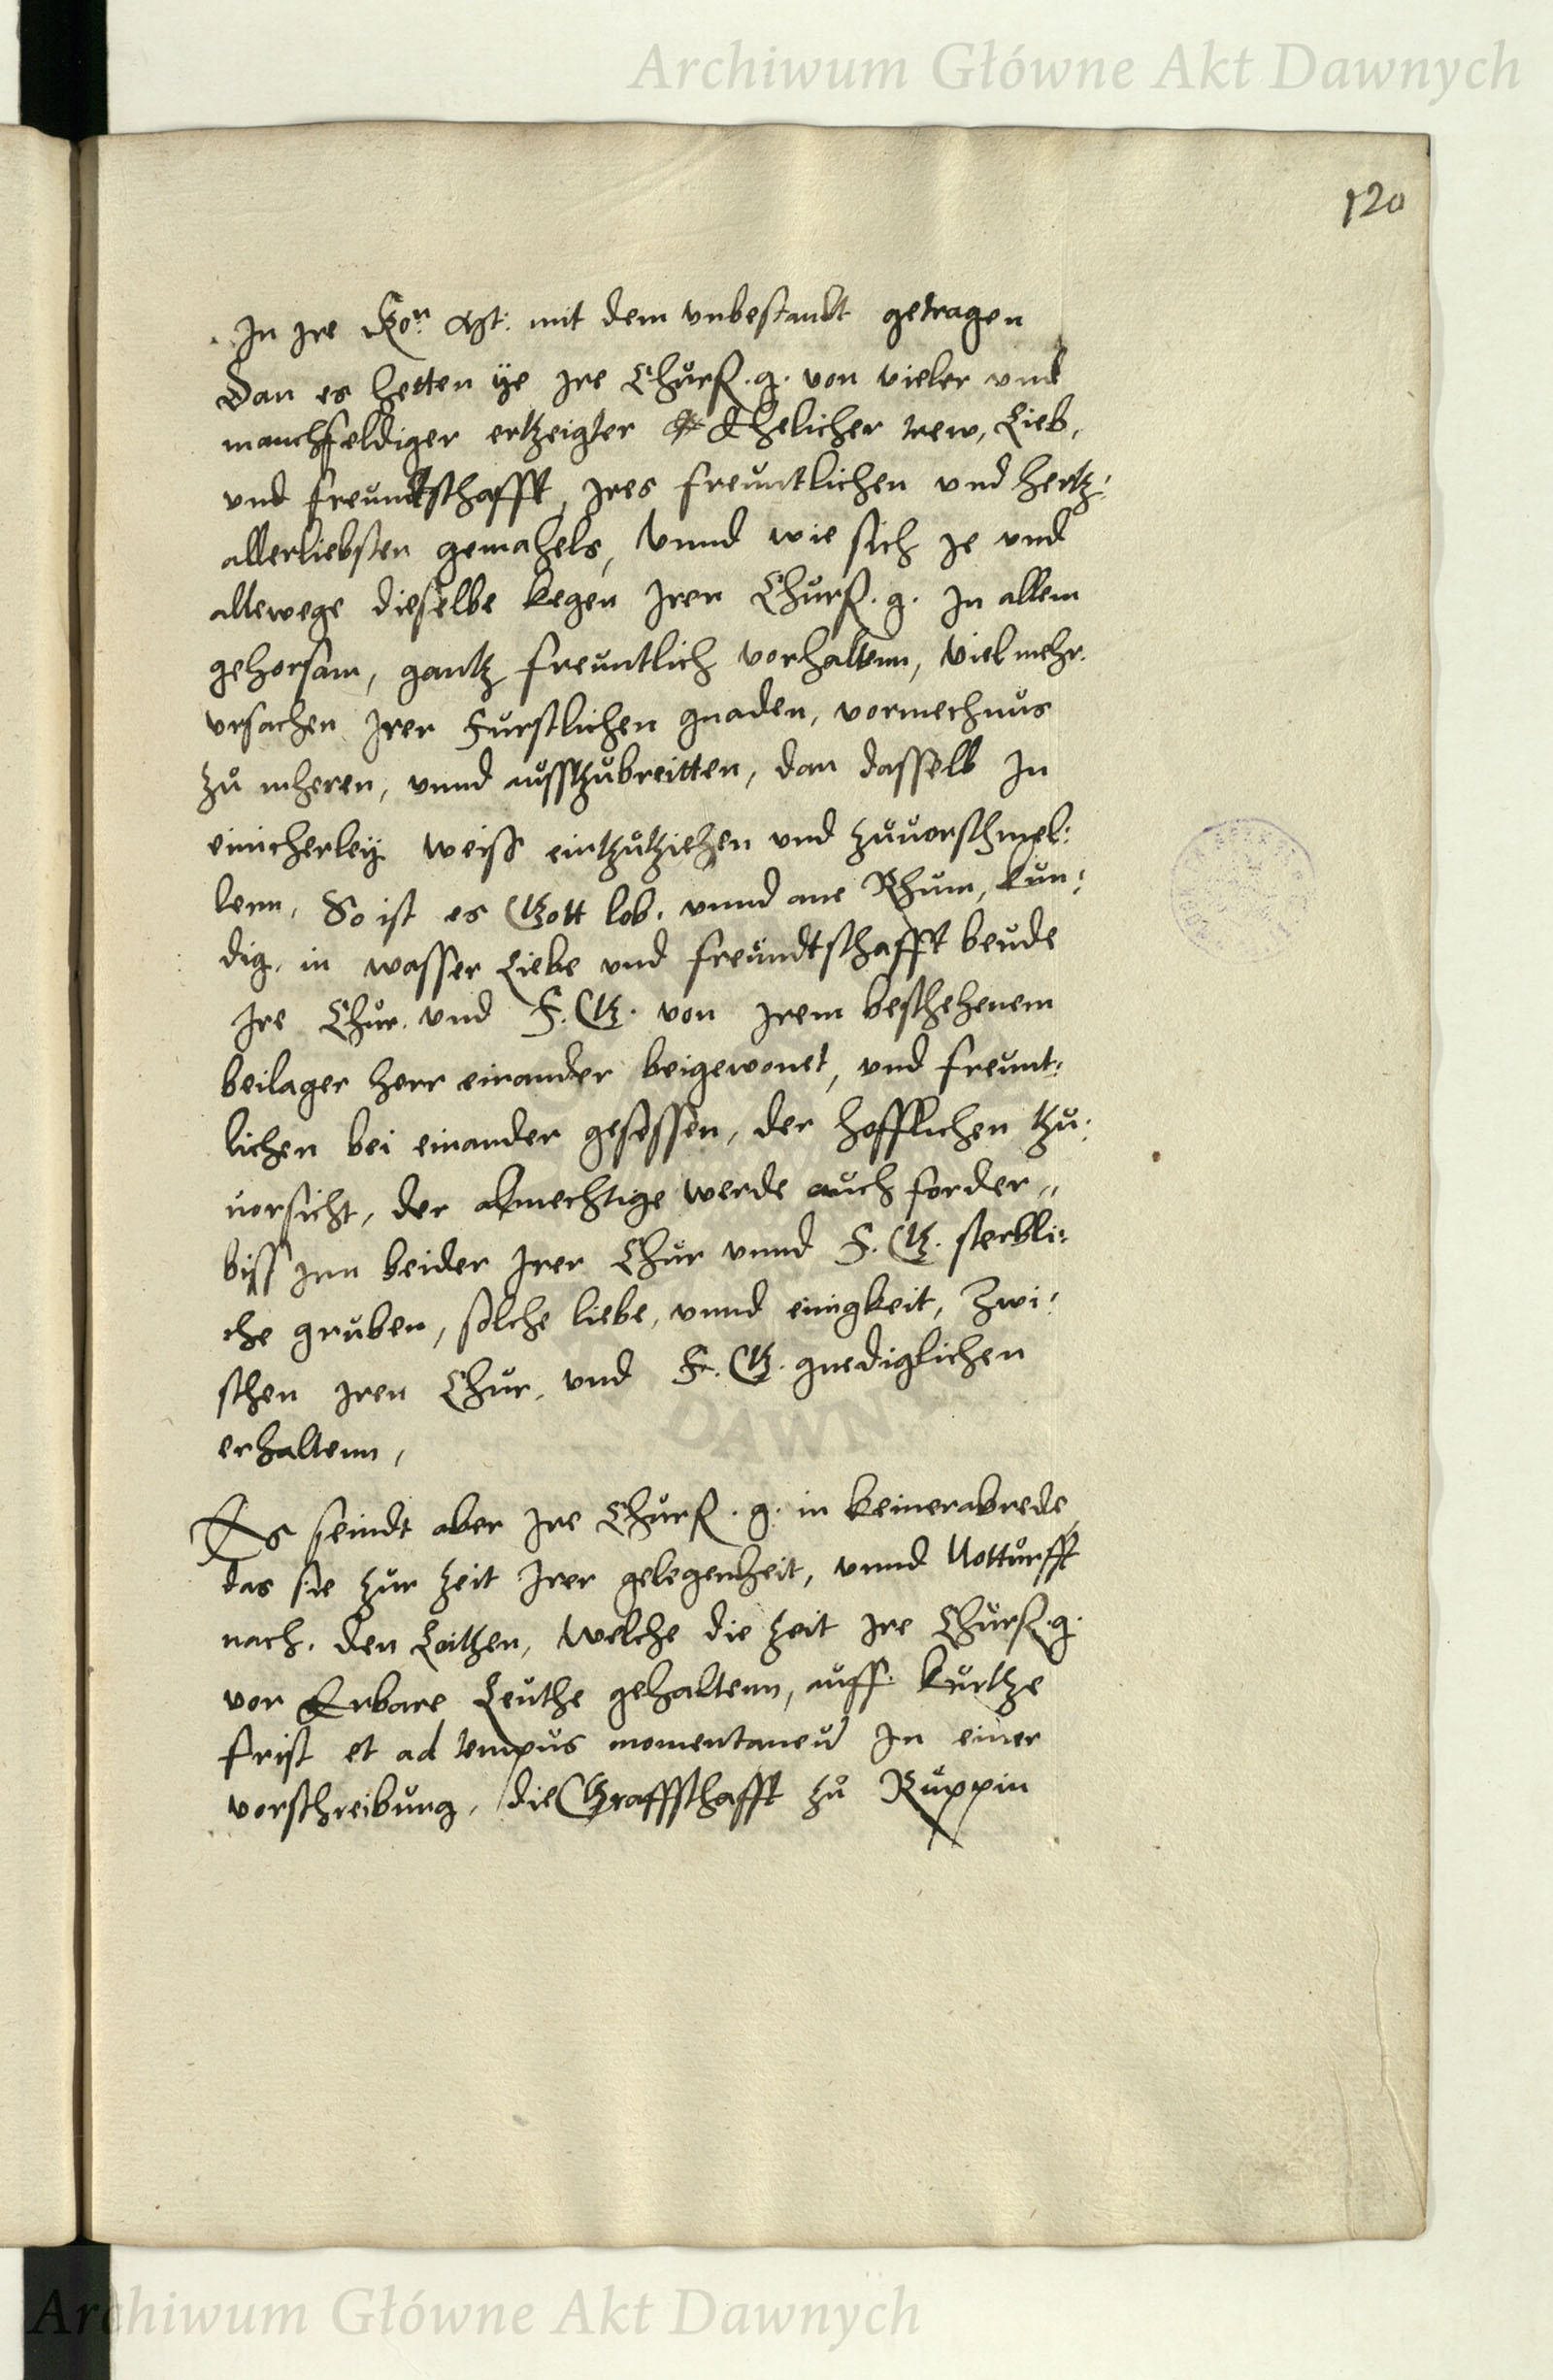 Archiwum Główne Akt Dawnych
120
In jre Kon Mt: mit dem vnbestandt getragen
Dan es hetten ÿe jre Churf. g. von vieler vnd
manchfeldiger ertzeigter Ehelicher trew, Lieb,
vnd freundtschafft, jres freuntlichen vnd hertz:
allerliebsten gemahels, Vnnd wie sich je vnd
allewege dieselbe kegen Jren Churf. g. In allem
gehorsam, gantz freuntlich vorhaltenn, viel mehr
vrsachen Jrer Furstlichen gnaden, vormechnus
zu mheren, vnnd aussthubreitten, dan dasselb In
einicherleÿ weiss eintzutziehen vnd zuuorschmel:
lern, So ist es Gott lob. vnnd ane Rhum, kun:
dig, in wasser Liebe vnd freundtschafft beude
Jre Chur. vnd F. G. von jrem beschehenem
beilager herr einander beigewonet, vnd freunt:
lichen bei einander gesessen, der hofflichen thu:
uorsicht, der almechtige werde auch forder„
biss jnn beider Jrer Chur vnnd F. G. sterbli:
che gruben, solche liebe, vnnd einigkeit, Zwi:
schen jren Chur. vnd F. G. gnediglichen
erhaltenn,
Es seindt aber jre Churf. g. in keinerabrede,
das sie zur zeit Jrer gelegenheit, vnnd Notturfft
nach. den Leithen, Welche die zeit jre Churf. g.
vor Erbare Leuthe gehaltenn, auff kurtze
frist et ad tempus momentaneu In einer
vorschreibung, die Graffschafft zu Ruppin
DAWN
Archiwum Główne Akt Dawnych